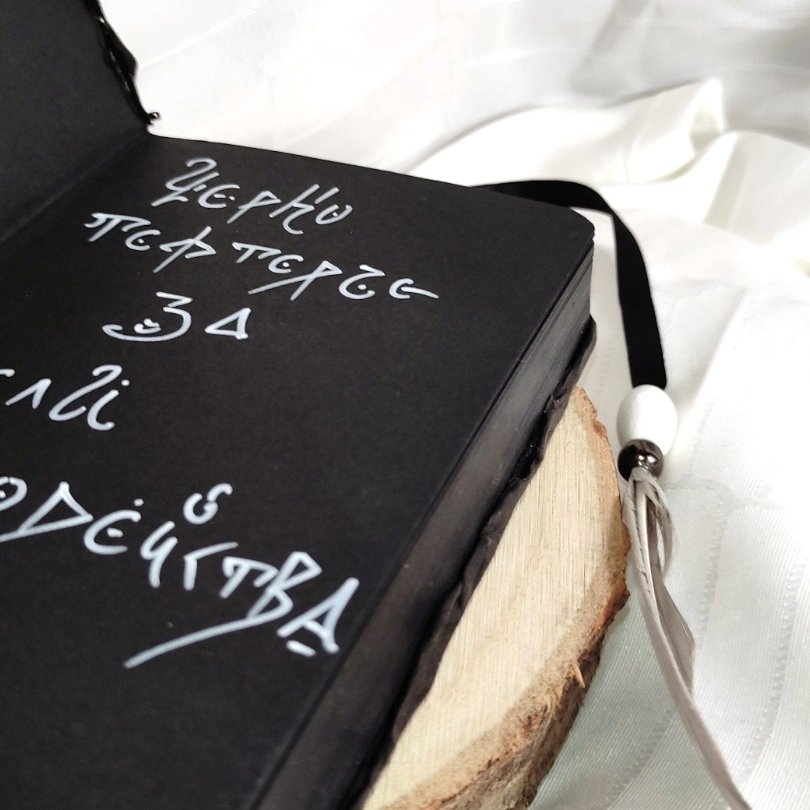 Черно
тефтерче
за
ели
одейства